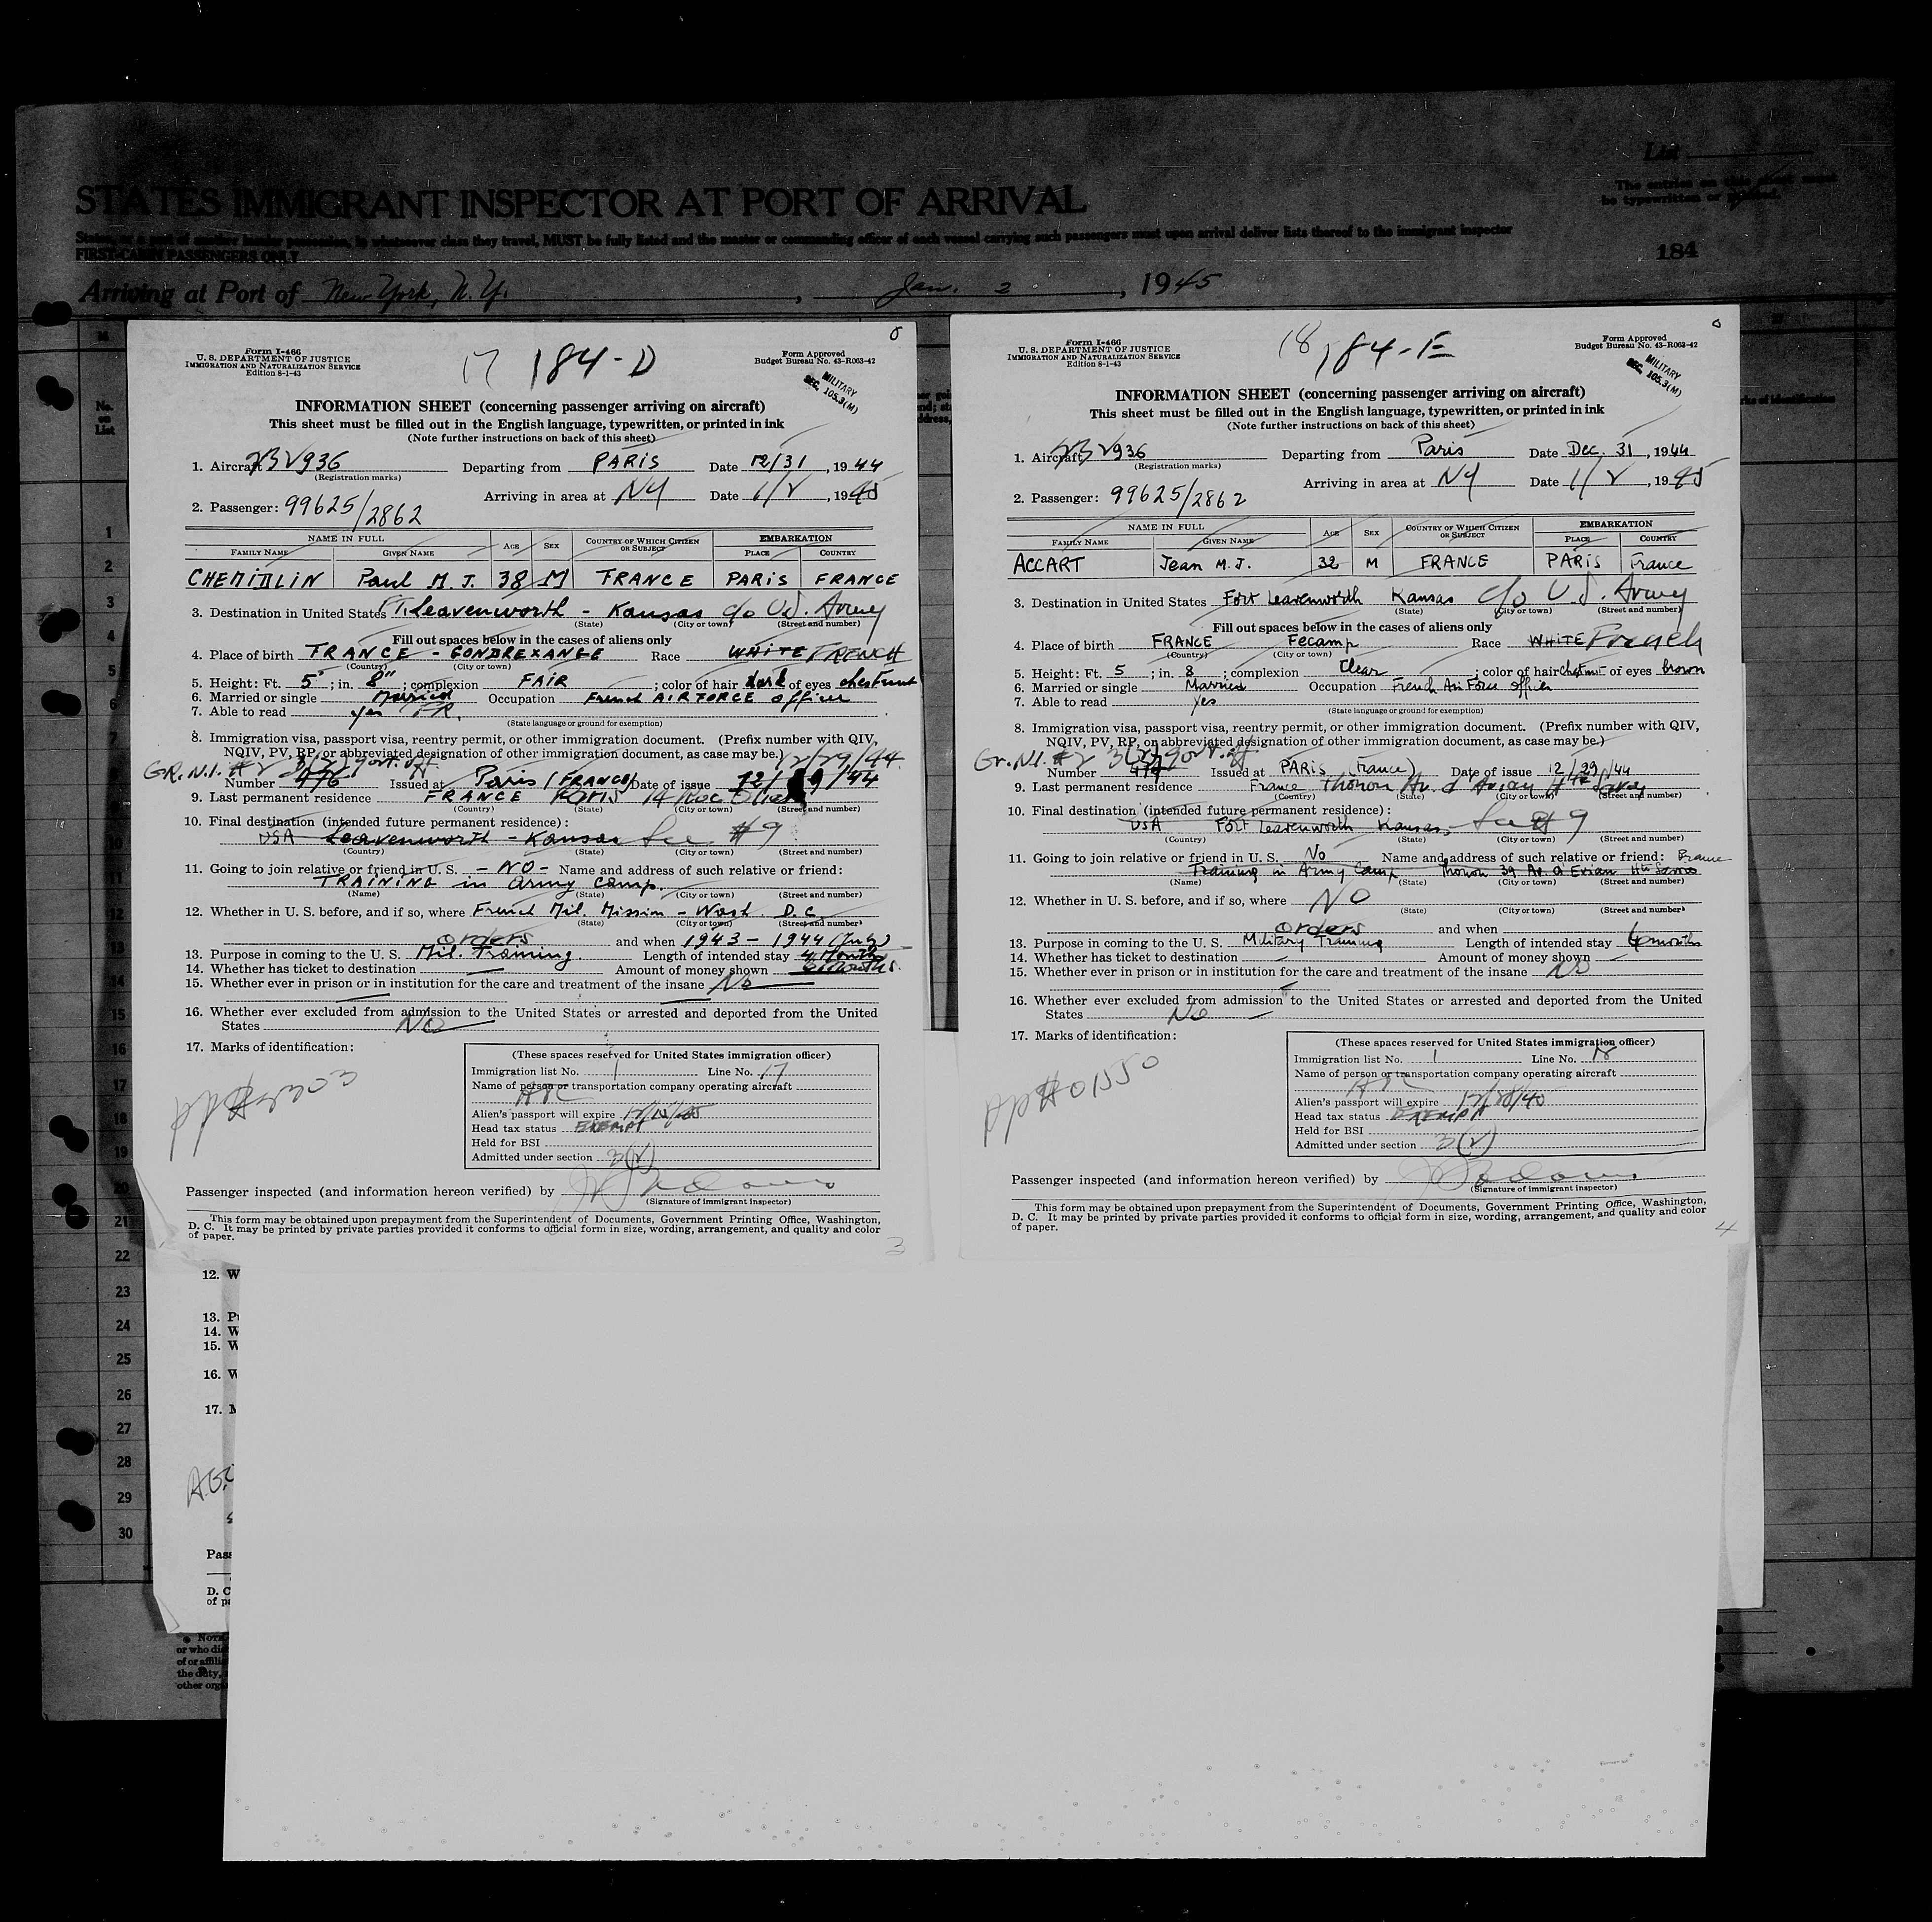 List
STATES IMMIGRANT INSPECTOR AT PORT OF ARRIVAL
The entries on this sheet must
be typewritten or printed.
MUST be fully listed and the master or commanding officer of each vessel carrying such passengers must upon arrival deliver lists thereof to the immigrant inspector
FIRST-CABIN PASSENGERS ONLY
184
Arriving at Port of New York, N. Y. , Jan. 2 , 1945
Form I-466
U. S. DEPARTMENT OF JUSTICE
IMMIGRATION AND NATURALIZATION SERVICE
Edition 8-1-43
17 184-D
Form Approved
Budget Bureau No. 43-R063-42
MILITARY
SEC. 105.3(M)
INFORMATION SHEET (concerning passenger arriving on aircraft)
This sheet must be filled out in the English language, typewritten, or printed in ink
(Note further instructions on back of this sheet)
1. Aircraft 2936 Departing from PARIS Date 12/31, 1944
(Registration marks)
Arriving in area at NY Date 1/2, 1945
2. Passenger: 99625/2862
NAME IN FULL AGE SEX COUNTRY OF WHICH CITIZEN OR SUBJECT EMBARKATION
FAMILY NAME GIVEN NAME PLACE COUNTRY
Paul M. J. 38 M FRANCE PARIS FRANCE
3. Destination in United States Ft. Leavenworth - Kansas c/o U.S. Army
(State) (City or town) (Street and number)
Fill out spaces below in the cases of aliens only
4. Place of birth FRANCE - GONDREXANGE Race WHITE FRENCH
(Country) (City or town)
5. Height: Ft. 5 ; in. 8" ; complexion FAIR ; color of hair dark of eyes chestnut
6. Married or single Married Occupation French AIR FORCE officer
7. Able to read yes FR.
(State language or ground for exemption)
8. Immigration visa, passport visa, reentry permit, or other immigration document. (Prefix number with QIV,
NQIV, PV, RP, or abbreviated designation of other immigration document, as case may be.) 12/29/44
GR. N.I. #2 3(2) govt. off
Number 476 Issued at Paris (FRANCE) Date of issue 12/ 9/44
9. Last permanent residence FRANCE PARIS 14 Roc
(Country) (State) (City or town) (Street and number)
10. Final destination (intended future permanent residence):
USA Leavenworth - Kansas See #9
(Country) (State) (City or town) (Street and number)
11. Going to join relative or friend in U. S. - NO - Name and address of such relative or friend:
TRAINING in Army Camp.
(Name) (State) (City or town) (Street and number)
12. Whether in U. S. before, and if so, where French Mil. Mission - Wash. D.C.
(State) (City or town) (Street and number)
orders and when 1943 - 1944 (July)
13. Purpose in coming to the U. S. Mil. Training. Length of intended stay 4 Months
14. Whether has ticket to destination — Amount of money shown
15. Whether ever in prison or in institution for the care and treatment of the insane No
16. Whether ever excluded from admission to the United States or arrested and deported from the United
States No
17. Marks of identification:
(These spaces reserved for United States immigration officer)
Immigration list No. 1 Line No. 17
Name of person or transportation company operating aircraft
ATC
Alien's passport will expire
Head tax status EXEMPT
Held for BSI
Admitted under section 3(2)
Passenger inspected (and information hereon verified) by
(Signature of immigrant inspector)
This form may be obtained upon prepayment from the Superintendent of Documents, Government Printing Office, Washington,
D. C. It may be printed by private parties provided it conforms to official form in size, wording, arrangement, and quality and color
of paper.
3
Form I-466
U. S. DEPARTMENT OF JUSTICE
IMMIGRATION AND NATURALIZATION SERVICE
Edition 8-1-43
18 184-E
Form Approved
Budget Bureau No. 43-R063-42
MILITARY
SEC. 105.3(M)
INFORMATION SHEET (concerning passenger arriving on aircraft)
This sheet must be filled out in the English language, typewritten, or printed in ink
(Note further instructions on back of this sheet)
1. Aircraft 2936 Departing from Paris Date Dec. 31, 1944
(Registration marks)
Arriving in area at NY Date 1/2, 1945
2. Passenger: 99625/2862
NAME IN FULL AGE SEX COUNTRY OF WHICH CITIZEN OR SUBJECT EMBARKATION
FAMILY NAME GIVEN NAME PLACE COUNTRY
ACCART Jean M.J. 32 M FRANCE PARIS France
3. Destination in United States Fort Leavenworth Kansas c/o U.S. Army
(State) (City or town) (Street and number)
Fill out spaces below in the cases of aliens only
4. Place of birth FRANCE Fecamp Race WHITE French
(Country) (City or town)
5. Height: Ft. 5 ; in. 8 ; complexion Clear ; color of hair chestnut of eyes brown
6. Married or single Married Occupation French Air Force officer
7. Able to read Yes
(State language or ground for exemption)
8. Immigration visa, passport visa, reentry permit, or other immigration document. (Prefix number with QIV,
NQIV, PV, RP, or abbreviated designation of other immigration document, as case may be.)
Gr. N.I. #2 3(2) govt. off
Number Issued at PARIS (France) Date of issue 12/29/44
9. Last permanent residence France Thonon Av. d'
(Country) (State) (City or town) (Street and number)
10. Final destination (intended future permanent residence):
USA Fort Leavenworth Kansas, See #9
(Country) (State) (City or town) (Street and number)
11. Going to join relative or friend in U. S. No Name and address of such relative or friend: France
Training in Army Camp Thonon 39 Av. d'Evian Hte Savoie
(Name) (State) (City or town) (Street and number)
12. Whether in U. S. before, and if so, where NO
(State) (City or town) (Street and number)
orders and when
13. Purpose in coming to the U. S. Military Training Length of intended stay 6 months
14. Whether has ticket to destination — Amount of money shown —
15. Whether ever in prison or in institution for the care and treatment of the insane No
16. Whether ever excluded from admission to the United States or arrested and deported from the United
States No —
17. Marks of identification:
PP#01550
(These spaces reserved for United States immigration officer)
Immigration list No. 1 Line No. 18
Name of person or transportation company operating aircraft
ATC
Alien's passport will expire
Head tax status EXEMPT
Held for BSI
Admitted under section 3(2)
Passenger inspected (and information hereon verified) by
(Signature of immigrant inspector)
This form may be obtained upon prepayment from the Superintendent of Documents, Government Printing Office, Washington,
D. C. It may be printed by private parties provided it conforms to official form in size, wording, arrangement, and quality and color
of paper.
4
No. on List
1
2
3
4
5
6
7
10
11
12
13
14
15
16
17
18
19
20
21
22
23
24
25
26
27
28
29
30
12. W
13. P
14. W
15. W
16. W
17. M
Pass
D. C
of pa
NOTE
or who
of or affili
the duty,
other orga